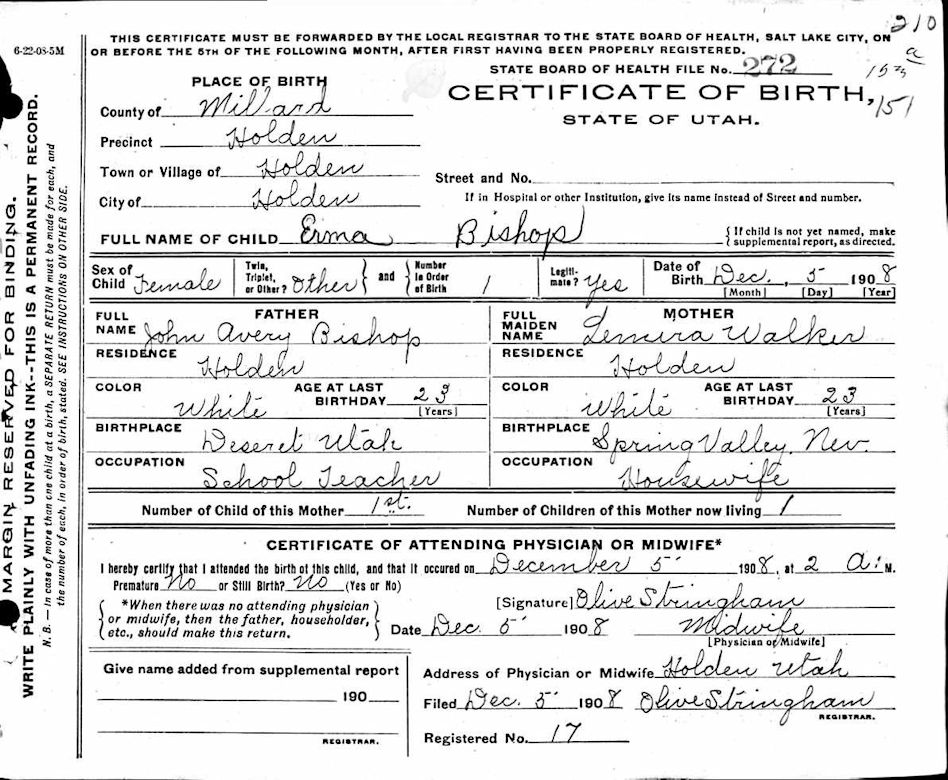 210
6-22-08-5M
THIS CERTIFICATE MUST BE FORWARDED BY THE LOCAL REGISTRAR TO THE STATE BOARD OF HEALTH, SALT LAKE CITY, ON
OR BEFORE THE 5TH OF THE FOLLOWING MONTH, AFTER FIRST HAVING BEEN PROPERLY REGISTERED.
STATE BOARD OF HEALTH FILE No. 272
151
MARGIN RESERVED FOR BINDING.
WRITE PLAINLY WITH UNFADING INK--THIS IS A PERMANENT RECORD.
N. B. — In case of more than one child at a birth, a SEPARATE RETURN must be made for each, and
the number of each, in order of birth, stated. SEE INSTRUCTIONS ON OTHER SIDE.
PLACE OF BIRTH
County of Millard
Precinct Holden
Town or Village of Holden
City of Holden
CERTIFICATE OF BIRTH,
STATE OF UTAH.
Street and No.
If in Hospital or other Institution, give its name instead of Street and number.
FULL NAME OF CHILD Erma Bishop
{ If child is not yet named, make
supplemental report, as directed.
Sex of Child Female
Twin, Triplet, or Other? Other } and { Number in Order of Birth 1
Legitimate? Yes
Date of Birth Dec. 5 1908
[Month] [Day] [Year]
FATHER
FULL NAME John Avery Bishop
RESIDENCE Holden
COLOR White AGE AT LAST BIRTHDAY 23
[Years]
BIRTHPLACE Deseret Utah
OCCUPATION School Teacher
MOTHER
FULL MAIDEN NAME Lemira Walker
RESIDENCE Holden
COLOR White AGE AT LAST BIRTHDAY 23
[Years]
BIRTHPLACE Spring Valley, Nev.
OCCUPATION Housewife
Number of Child of this Mother 1st. Number of Children of this Mother now living 1
CERTIFICATE OF ATTENDING PHYSICIAN OR MIDWIFE*
I hereby certify that I attended the birth of this child, and that it occured on December 5 1908, at 2 A. M.
Premature No or Still Birth? No (Yes or No)
{ *When there was no attending physician
or midwife, then the father, householder,
etc., should make this return. }
[Signature] Olive Stringham
Date Dec. 5 1908 Midwife
[Physician or Midwife]
Give name added from supplemental report
190
REGISTRAR.
Address of Physician or Midwife Holden Utah
Filed Dec. 5 1908 Olive Stringham
REGISTRAR.
Registered No. 17